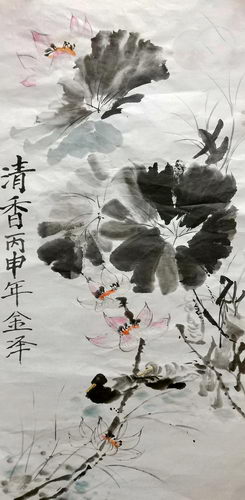 清香丙申年金泽